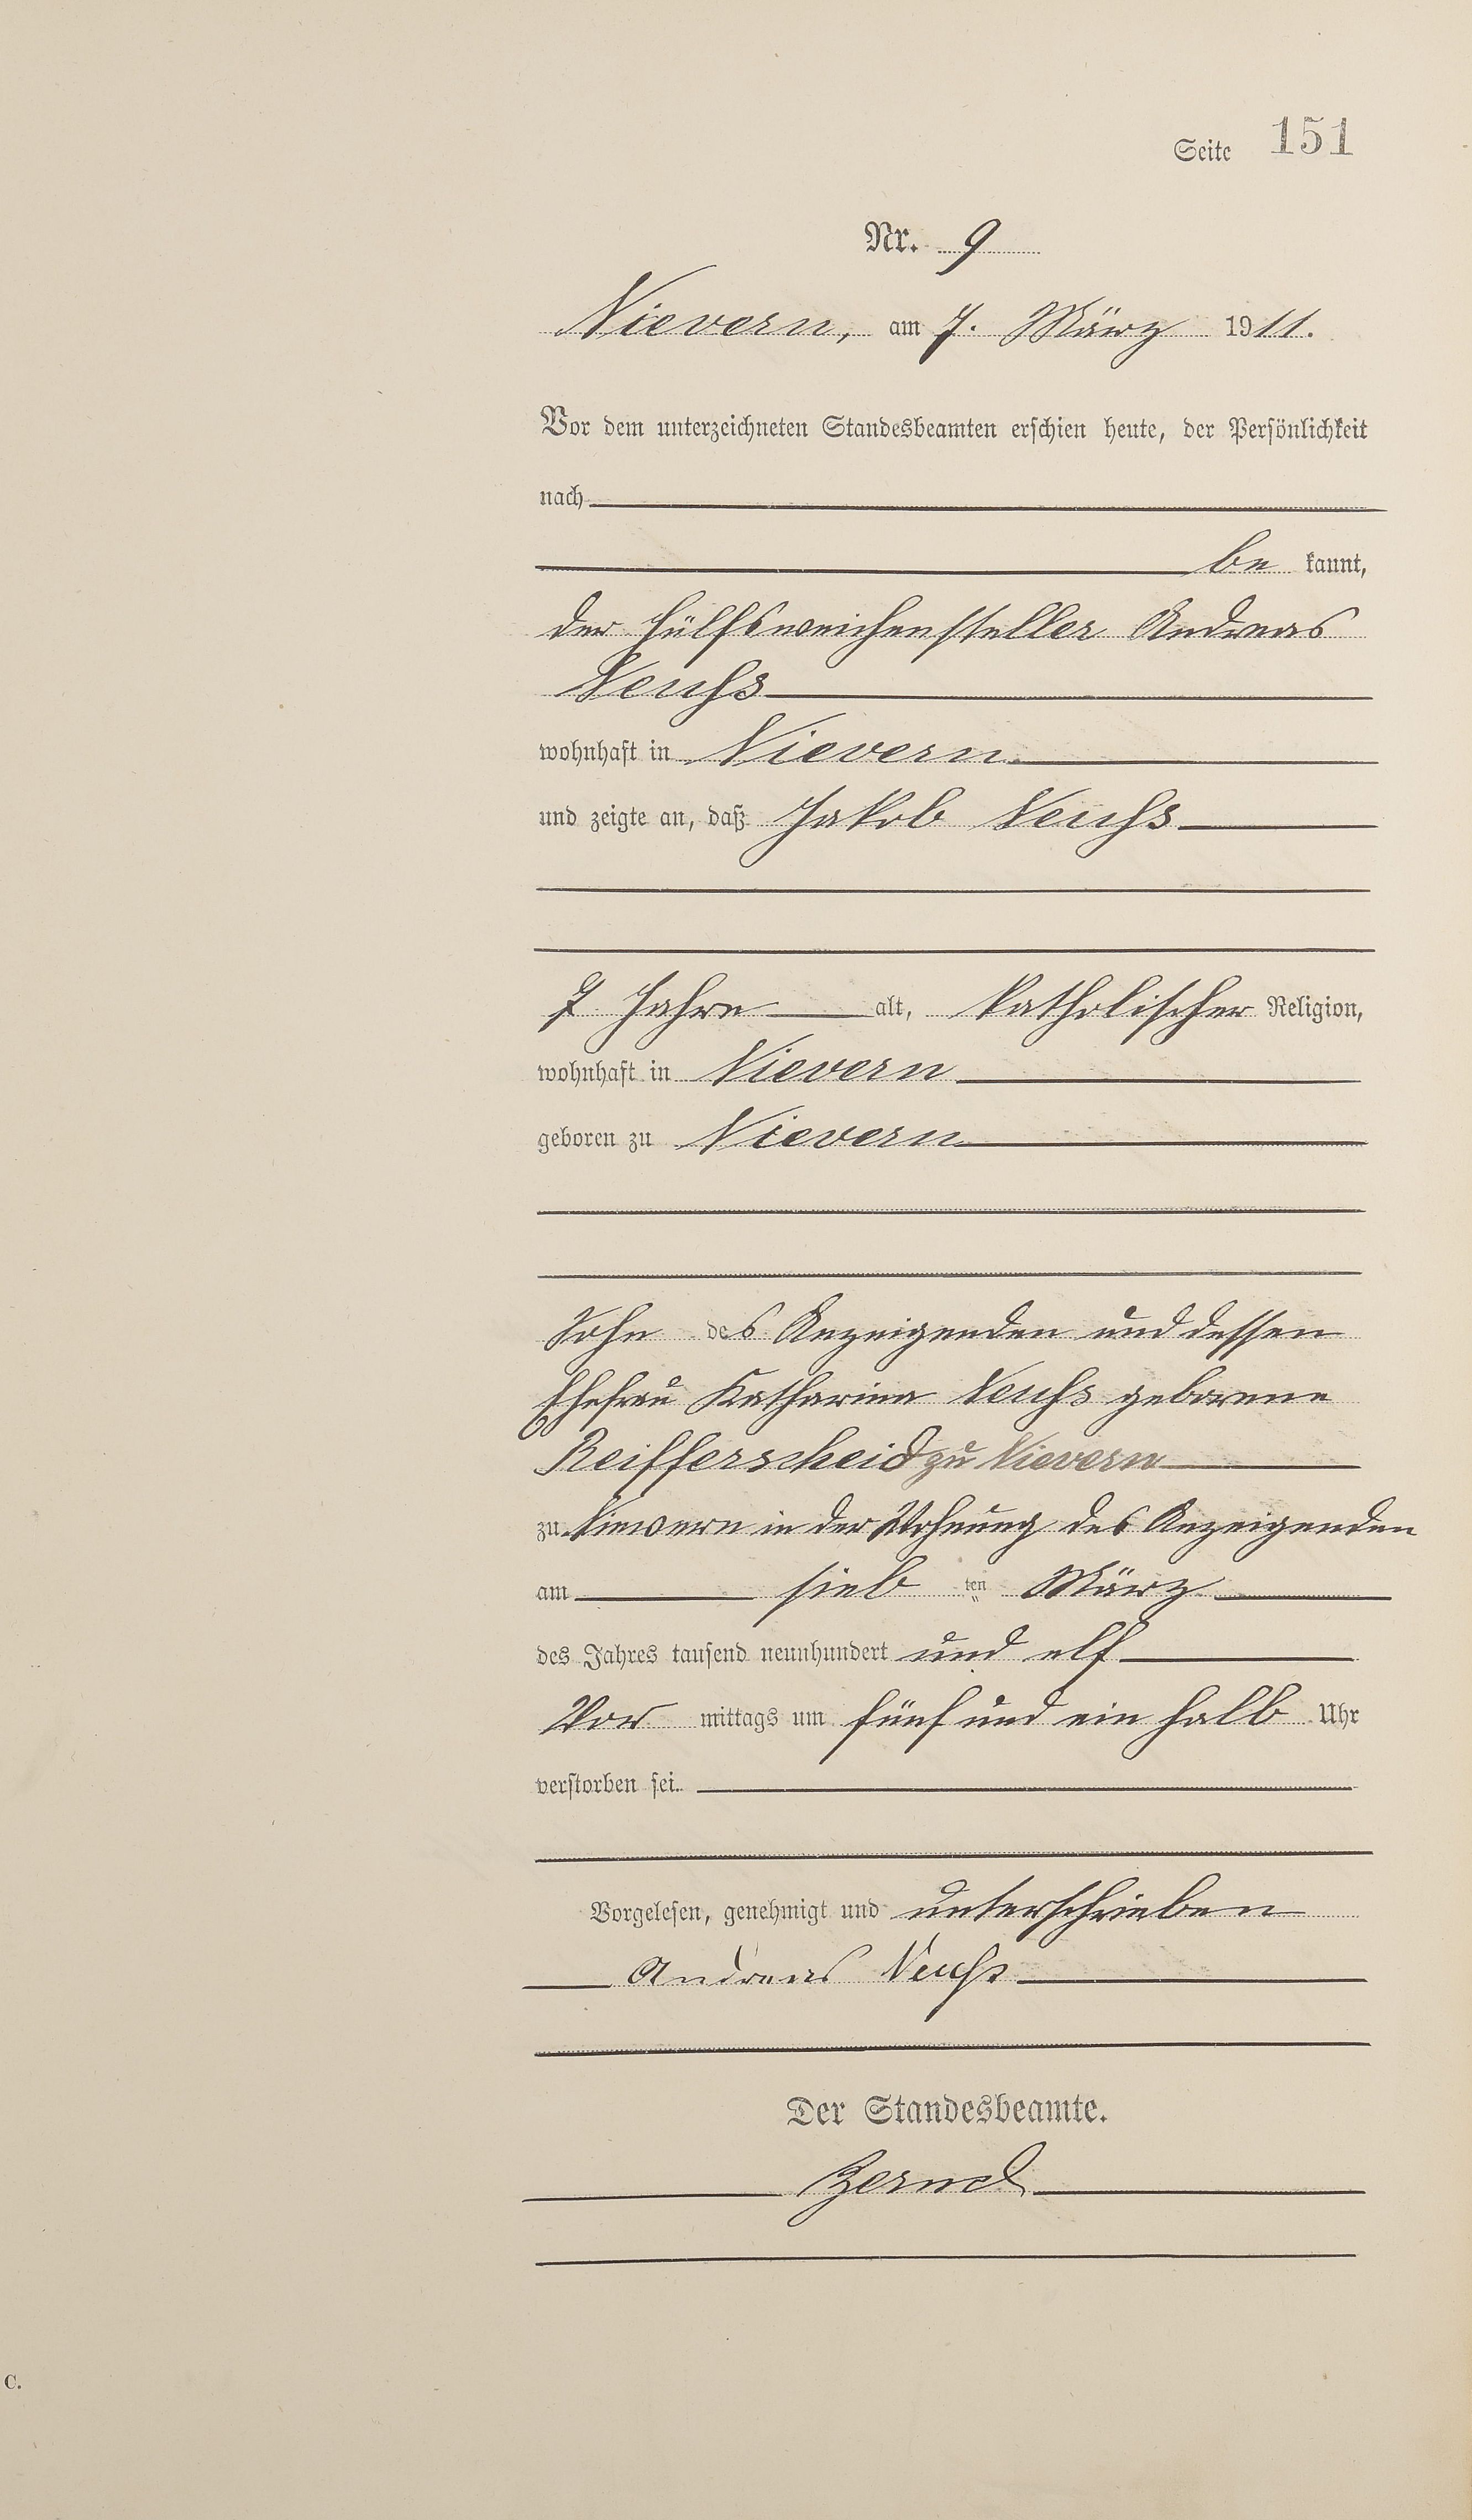 Seite 151
Nr. 9
Nievern, am 7. März 1911.
Vor dem unterzeichneten Standesbeamten erschien heute, der Persönlichkeit
nach
be kannt,
der Hülfsweichensteller Andreas
Neuhs
wohnhaft in Nievern
und zeigte an, daß Jakob Neuhs
Jahre alt, katholischer Religion,
wohnhaft in Nievern
geboren zu Nievern
Sohn des Anzeigenden und dessen
Ehefrau Katharina Neuhs geborene
Reifferscheid zu Nievern
zu Nievern in der Wohnung des Anzeigenden
am sieb ten März
des Jahres tausend neunhundert und elf
Vor mittags um fünf und ein halb Uhr
verstorben sei.
Vorgelesen, genehmigt und unterschrieben
Andreas Neuhs
Der Standesbeamte.
C.